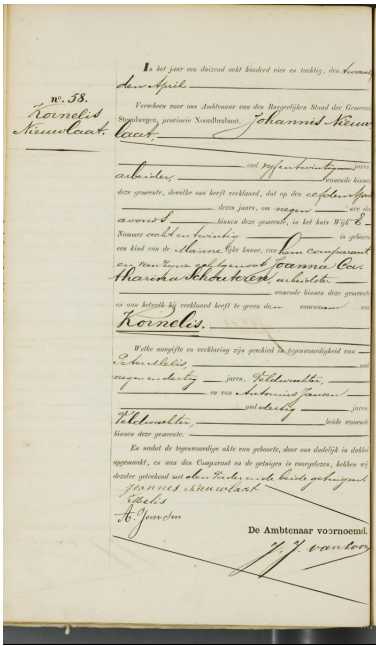 nº. 58.
Kornelis
Nieuwlaat.
In het jaar een duizend acht honderd vier en tachtig, den
den April
Verscheen voor ons Ambtenaar van den Burgerlijken Stand der Gemeente
Steenbergen, provincie Noordbrabant, Johannis Nieuw
laat,
oud vyfentwintig jaren
arbeider, wonende binnen
deze gemeente, dewelke ons heeft verklaard, dat op den elfden April
dezes jaars, om negen ure des
avonds, binnen deze gemeente, in het huis Wijk E
Nommer achtentwintig is geboren
een kind van de Manne lijke kunne, van hem comparant
en van zyne echtgenoot Joanna Ca
tharina Schouteren, arbeidster
wonende binnen deze gemeente
en aan hetwelk hij verklaard heeft te geven den voornaam van
Kornelis.
Welke aangifte en verklaring zijn geschied in tegenwoordigheid van
Peter Melis, oud
negenendertig jaren, Veldwachter,
en van Antonius Jansen
oud dertig jaren
Veldwachter, beide wonende
binnen deze gemeente.
En nadat de tegenwoordige akte van geboorte, door ons dadelijk in dubbel
opgemaakt, en aan den Comparant en de getuigen is voorgelezen, hebben wij
dezelve geteekend met den Vader en de beide getuigen.
Joannes Nieuwlaat
Melis
A. Jansen
De Ambtenaar voornoemd.
J. J. van Loon